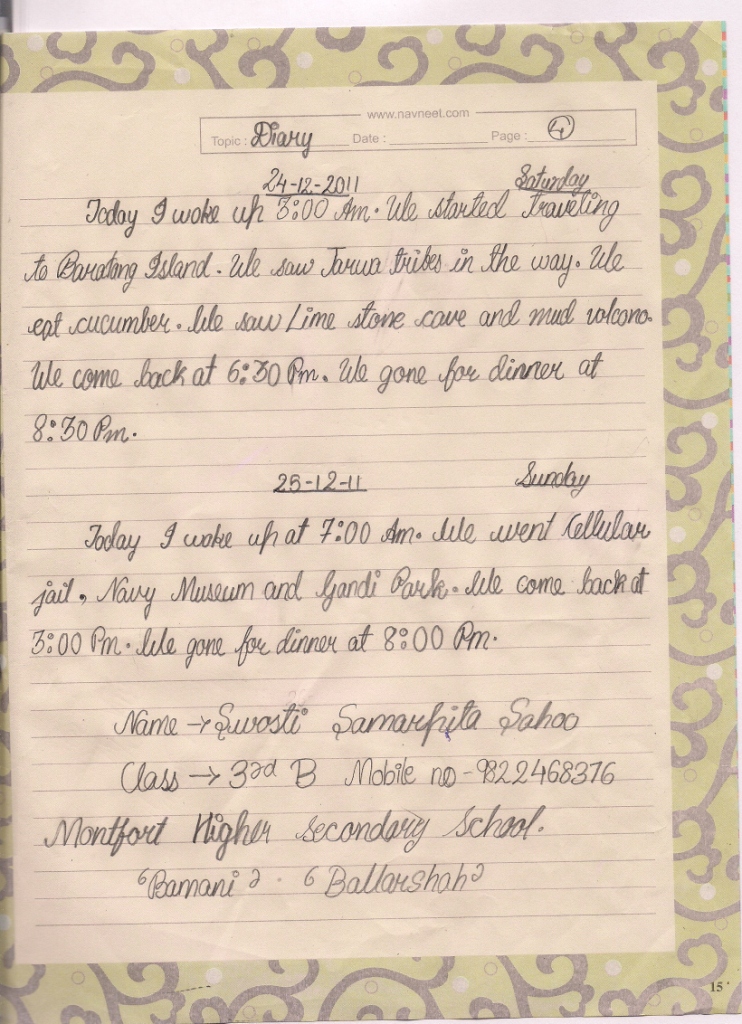 www.navneet.com
Topic : Diary Date : Page : 4
24-12-2011 Saturday
Today I woke up 3:00 Am. We started Traveling
to Baratang Island. We saw Jarua tribes in the way. We
eat cucumber. We saw Lime stone cave and mud volcono.
We come back at 6:30 Pm. We gone for dinner at
8:30 Pm.
25-12-11 Sunday
Today I woke up at 7:00 Am. We went Cellular
jail, Navy Museum and Gandi Park. We come back at
3:00 Pm. We gone for dinner at 8:00 Pm.
Name → Swosti Samarpita Sahoo
Class → 3rd B Mobile no - 9822468376
Montfort Higher secondary School.
"Bamani". "Ballarshah"
15